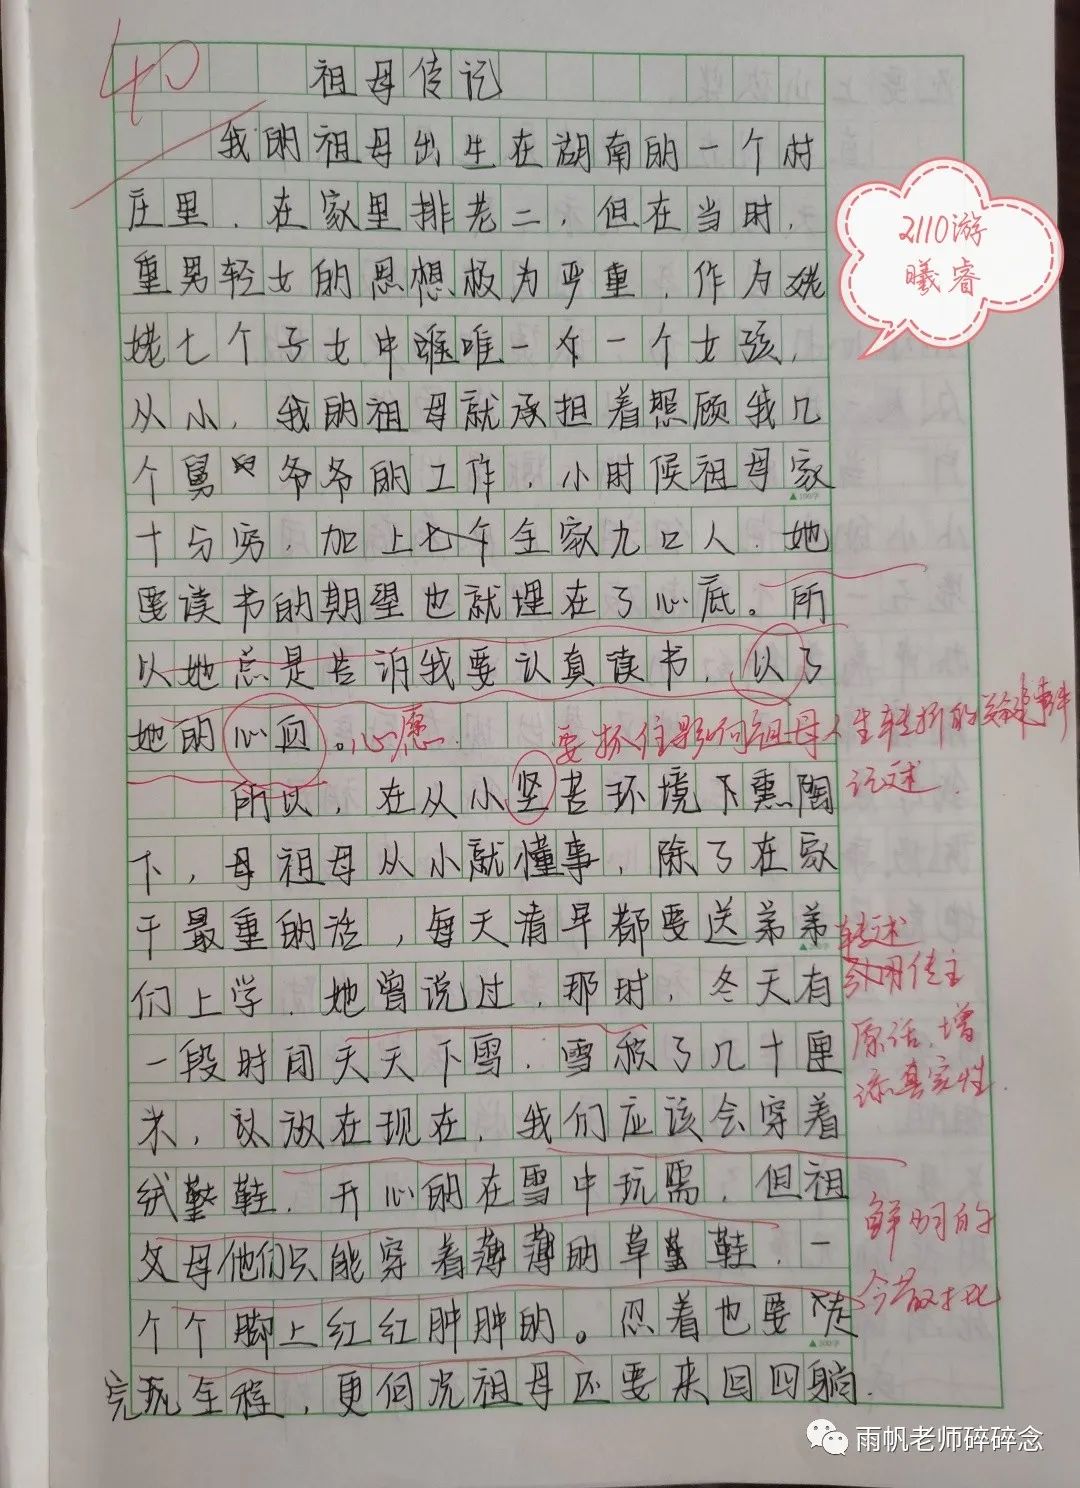 40
祖母传记
我的祖母出生在湖南的一个村
庄里，在家里排老二，但在当时，
重男轻女的思想极为严重，作为姥
姥七个子女中唯一一个女孩，
从小，我的祖母就承担着照顾我几
个舅爷爷的工作，小时候祖母家
十分穷，加上全家九口人，她
要读书的期望也就埋在了心底。所
以她总是告诉我要认真读书，以了
她的心血。心愿
要抓住影响祖母人生转折的关键事件
记述.
所以，在从小坚苦环境下熏陶
下，母祖母从小就懂事，除了在家
干最重的活，每天清早都要送弟弟
们上学，她曾说过，那时，冬天有
转述
引用传主
原话，增
添真实性.
一段时间天天下雪，雪积了几十厘
米，放在现在，我们应该会穿着
绒鞋，开心的在雪中玩，但祖
母他们只能穿着薄薄的草鞋，一
鲜明的
今昔对比
个个脚上红红肿肿的。忍着也要走
完全程，更何况祖母还要来回四趟.
2110游
曦睿
▲100字
▲200字
▲300字
雨帆老师碎碎念